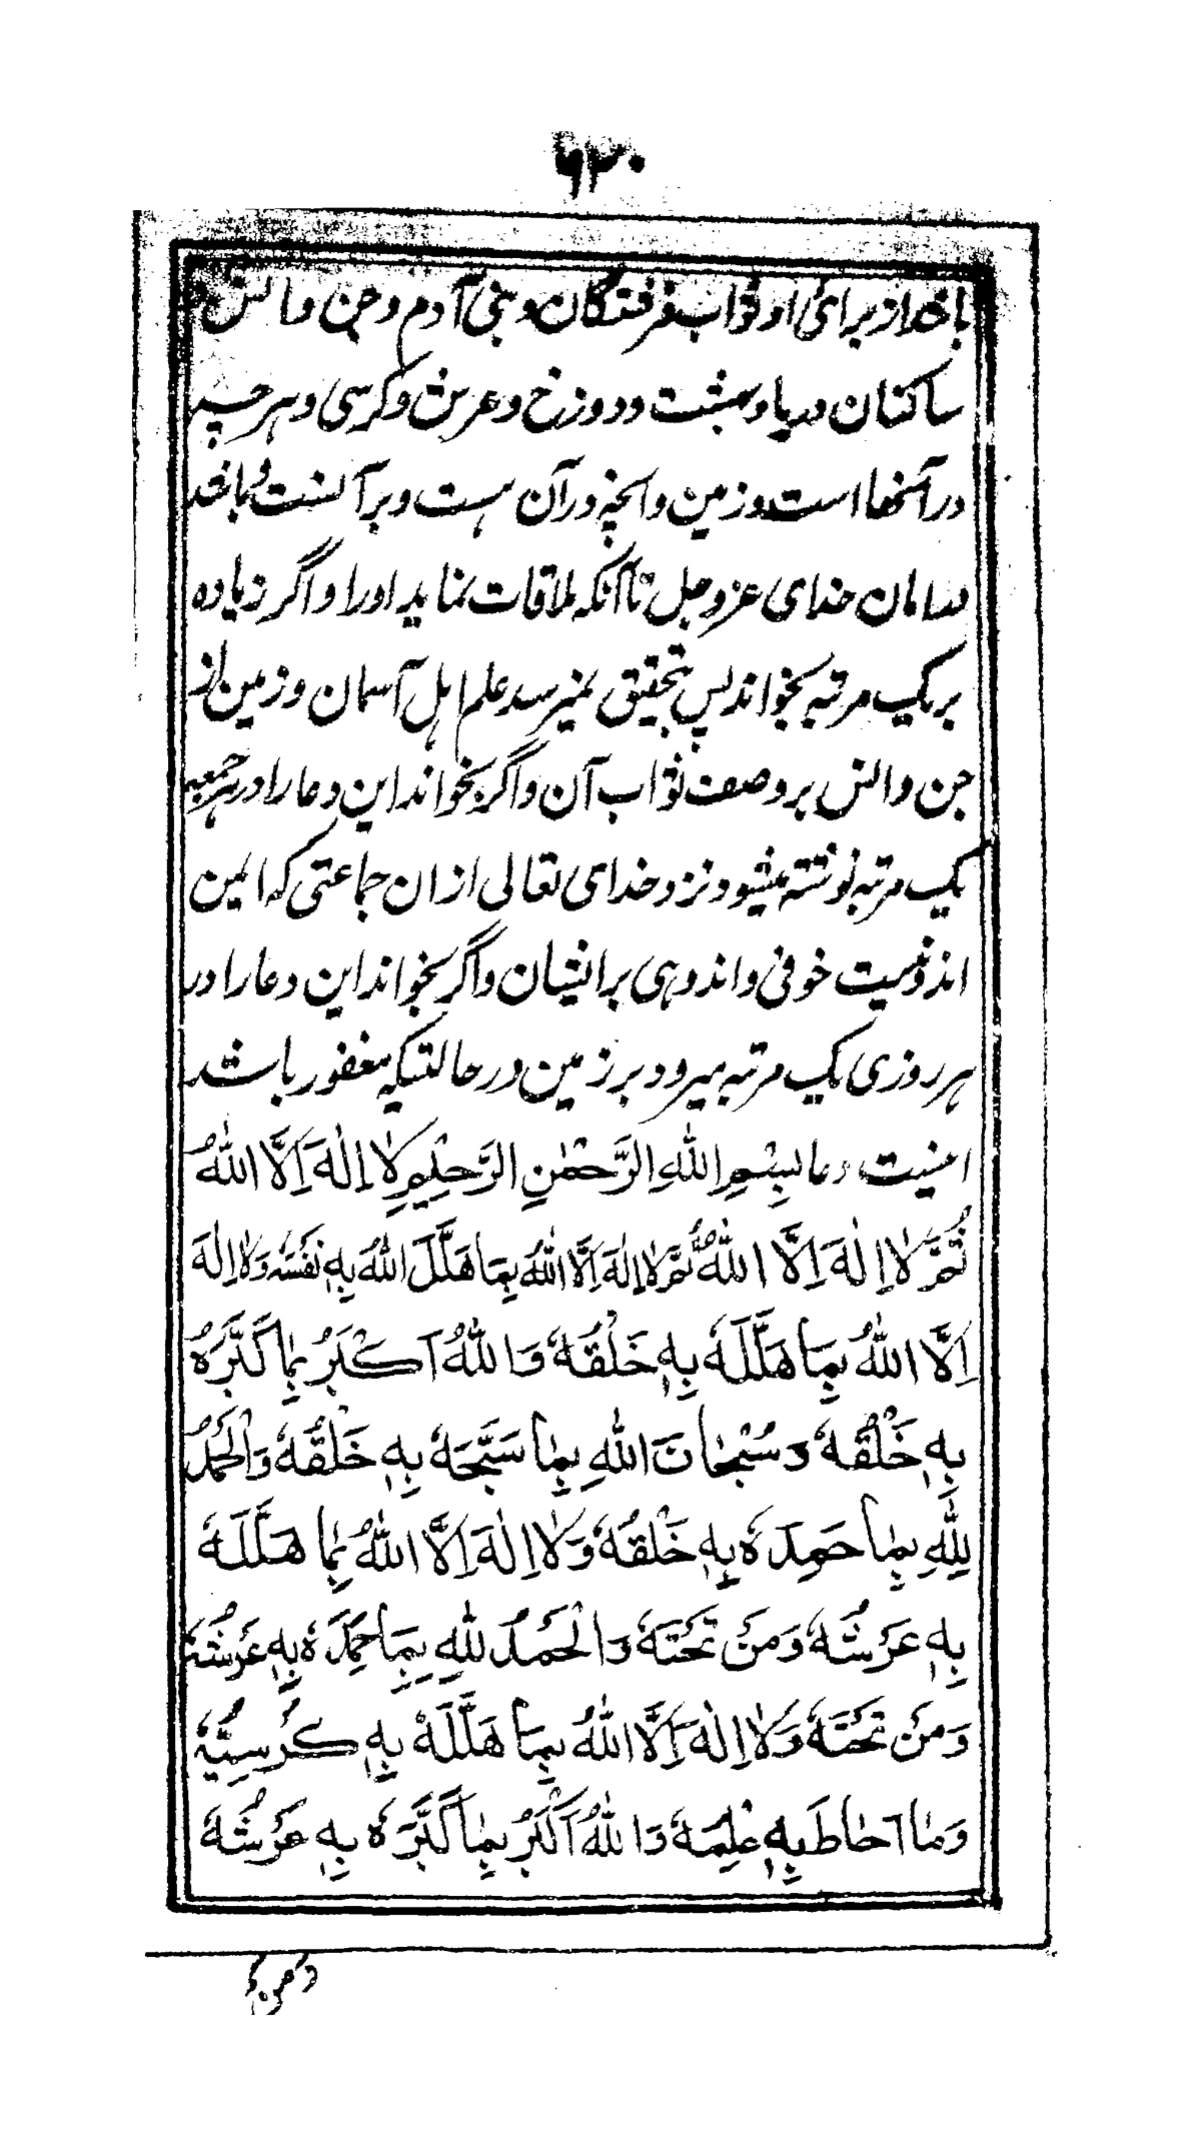 ۶۳۰
باخدا از برای او ثواب فرشتگان و بنی آدم و جن و انس
ساکنان دریا و بهشت و دوزخ و عرش و کرسی و هرچه
در آنها است و زمین و آنچه در آن هست و بر آنست و باشد
در امان خدای عزوجل تا آنکه ملاقات نماید اورا و اگر زیاده
بر یک مرتبه بخواند پس بتحقیق نمیرسد علم اهل آسمان و زمین از
جن و انس بر وصف ثواب آن و اگر بخواند این دعا را در هر جمعه
یک مرتبه نوشته میشود نزد خدای تعالی از ان جماعتی که ایمن
اند و نیست خوفی و اندوهی بر ایشان و اگر بخواند این دعا را در
هر روزی یک مرتبه میرود بر زمین در حالتیکه مغفور باشد
اینست دعا بِسْمِ اللهِ الرَّحْمٰنِ الرَّحِیْمِ لَا اِلٰهَ اِلَّا اللهُ
ثُمَّ لَا اِلٰهَ اِلَّا اللهُ ثُمَّ لَا اِلٰهَ اِلَّا اللهُ بِمَا هَلَّلَ اللهُ بِهٖ نَفْسَهٗ وَلَا اِلٰهَ
اِلَّا اللهُ بِمَا هَلَّلَهٗ بِهٖ خَلْقُهٗ وَاللهُ اَکْبَرُ بِمَا کَبَّرَهٗ
بِهٖ خَلْقُهٗ وَسُبْحَانَ اللهِ بِمَا سَبَّحَهٗ بِهٖ خَلْقُهٗ وَالْحَمْدُ
لِلّٰهِ بِمَا حَمِدَهٗ بِهٖ خَلْقُهٗ وَلَا اِلٰهَ اِلَّا اللهُ بِمَا هَلَّلَهٗ
بِهٖ عَرْشُهٗ وَمَنْ تَحْتَهٗ وَالْحَمْدُ لِلّٰهِ بِمَا حَمِدَهٗ بِهٖ عَرْشُهٗ
وَمَنْ تَحْتَهٗ وَلَا اِلٰهَ اِلَّا اللهُ بِمَا هَلَّلَهٗ بِهٖ کُرْسِیُّهٗ
وَمَا اَحَاطَ بِهٖ عِلْمُهٗ وَاللهُ اَکْبَرُ بِمَا کَبَّرَهٗ بِهٖ عَرْشُهٗ
وَمَنْ